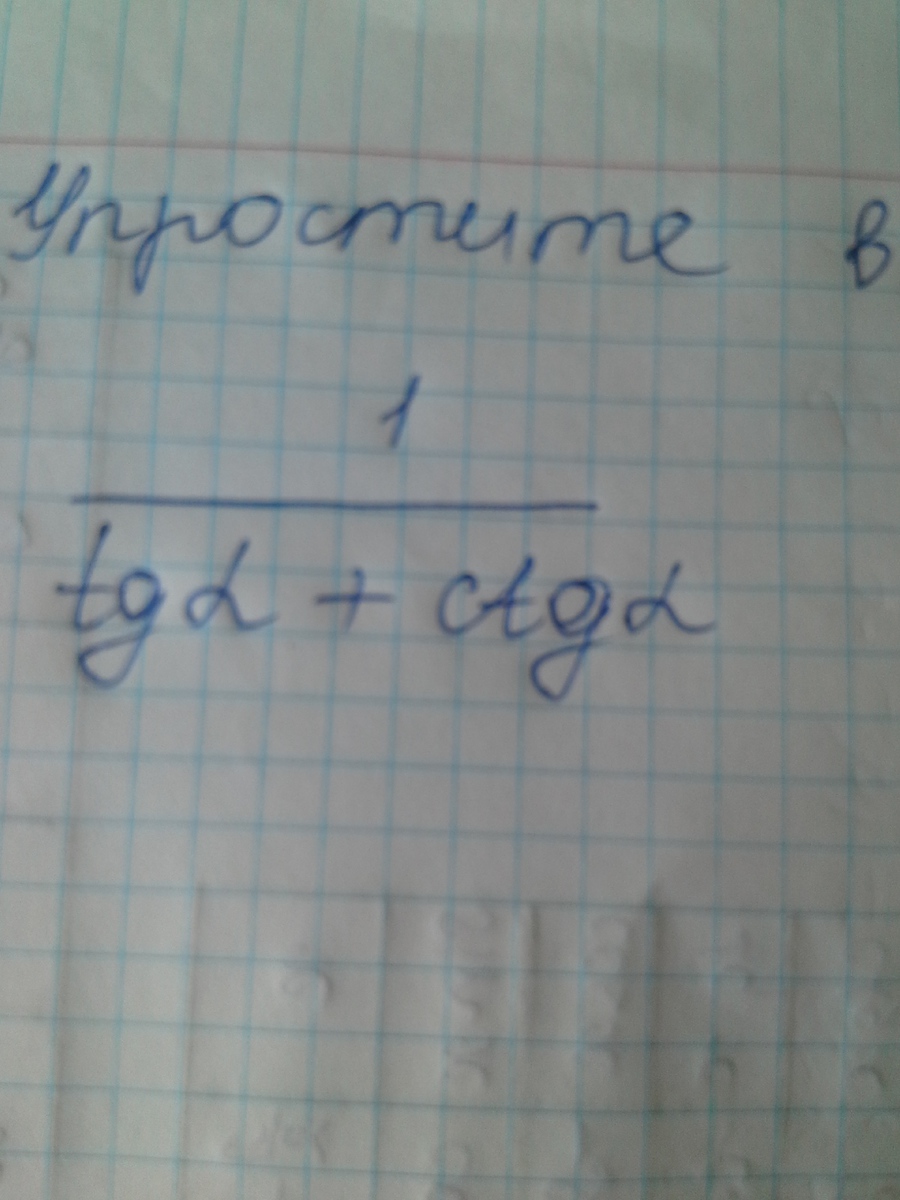 Упростите в
1
tg α + ctg α